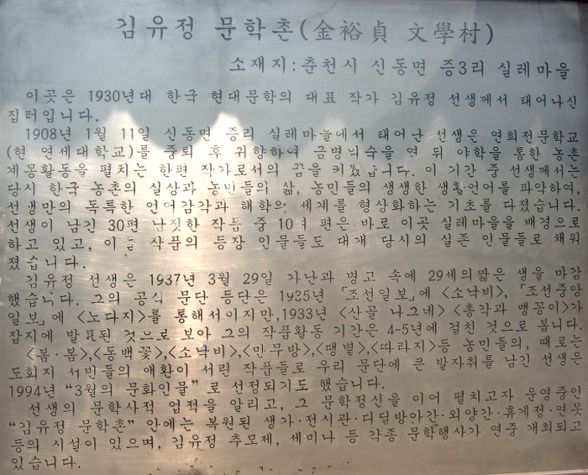 김유정 문학촌(金裕貞 文學村)
소재지:춘천시 신동면 증3리 실레마을
이곳은 1930년대 한국 현대문학의 대표 작가 김유정 선생께서 태어나신
집터입니다.
1908년 1월 11일 신동면 증리 실레마을에서 태어난 선생은 연희전문학교
(현 연세대학교)를 중퇴 후 귀향하여 금병의숙을 연 뒤 야학을 통한 농촌
계몽활동을 펼치는 한편 작가로서의 꿈을 키웠습니다. 이 기간 중 선생께서는
당시 한국 농촌의 실상과 농민들의 삶, 농민들의 생생한 생활언어를 파악하여,
선생만의 독특한 언어감각과 해학의 세계를 형상화하는 기초를 다졌습니다.
선생이 남긴 30편 남짓한 작품 중 10여 편은 바로 이곳 실레마을을 배경으로
하고 있고, 이들 작품의 등장 인물들도 대개 당시의 실존 인물들로 채워
졌습니다.
김유정 선생은 1937년 3월 29일 가난과 병고 속에 29세의짧은 생을 마감
했습니다. 그의 공식 문단 등단은 1935년 「조선일보」에 <소낙비>, 「조선중앙
일보」에 <노다지>를 통해서이지만,1933년 <산골 나그네> <총각과 맹꽁이>가
잡지에 발표된 것으로 보아 그의 작품활동 기간은 4-5년에 걸친 것으로 봅니다.
<봄·봄>,<동백꽃>,<소낙비>,<만무방>,<땡볕>,<따라지>등 농민들의, 때로는
도회지 서민들의 애환이 서린 작품들로 우리 문단에 큰 발자취를 남긴 선생은
1994년 "3월의 문화인물"로 선정되기도 했습니다.
선생의 문학사적 업적을 알리고, 그 문학정신을 이어 펼치고자 운영중인
"김유정 문학촌" 안에는 복원된 생가·전시관·디딜방아간·외양간·휴게정·연못
등의 시설이 있으며, 김유정 추모제, 세미나 등 각종 문학행사가 연중 개최되고
있습니다.